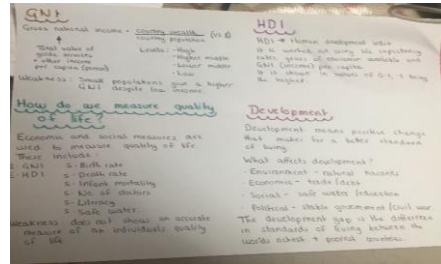 GNI
Gross national income = country wealth (US $)
country population
Total value of
goods services
+ other income
per capita (person)
Levels: - High
- Higher middle
- Lower middle
- Low
Weakness: Small populations give a higher
GNI despite low income.
How do we measure quality
of life?
Economic and social measures are
used to measure quality of life
These include:
E GNI
E HDI
S - Birth rate
S - Death rate
S - Infant mortality
S - No. of doctors
S - Literacy
S - Safe water
Weakness - does not show an accurate
measure of an individuals quality
of life
HDI
HDI → Human development index
it is worked out using life expectancy
rates, years of education available and
GNI (income) per capita
It is shown in values of 0-1, 1 being
the highest.
Development
Development means positive change
that makes for a better standard
of living
What affects development?
- Environment - natural hazards
- Economic - trade/debt
- Social - safe water/education
- Political - stable government/civil war
The development gap is the difference
in standards of living between the
worlds richest + poorest countries